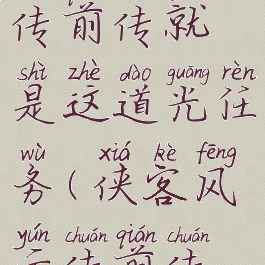 传前传就
shì zhè dào guāng rèn
是这道光任
wù xiá kè fēng
务(侠客风
yún chuán qián chuán
云传前传